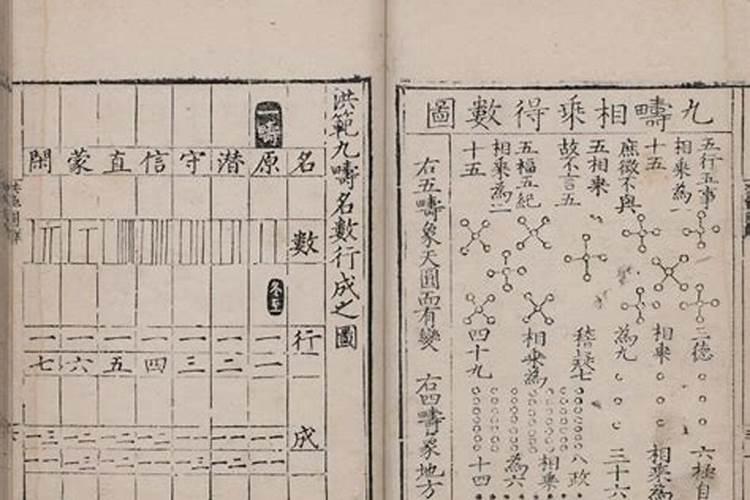 九疇相乘得數圖
五行五事
相乘為
十五
庶徵不與
五相乘
故不言五
五福五紀
相乘為二
十五
右五疇象天圓而有變
三德
相乘
為九
稽疑七
相乘為
四十九
六極自
相乘為
三十六
八政
相乘
為六
十四
右四疇象地方
洪範九疇名數行成之圖
名
數
行
成
一疇
原
潛
守
信
直
蒙
閑
冬至
一一
一二
一三
一四
一五
一六
一七